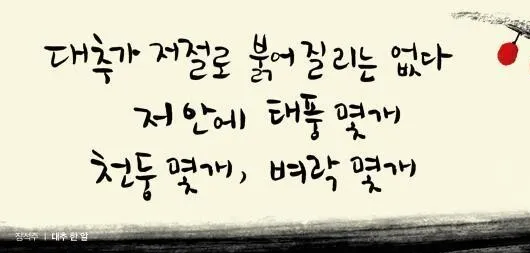 대추가 저절로 붉어질리는 없다
저 안에 태풍 몇개
천둥 몇개, 벼락 몇개
장석주 | 대추 한 알